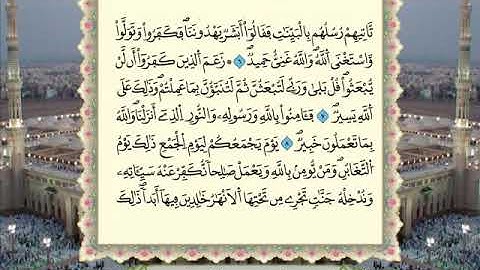 تَّاتِيهِمْ رُسُلُهُم بِالْبَيِّنَٰتِ فَقَالُوٓاْ أَبَشَرٌ يَهْدُونَنَا فَكَفَرُواْ وَتَوَلَّواْ
وَّاسْتَغْنَى اَللَّهُ وَاللَّهُ غَنِيٌّ حَمِيدٌ ٦ زَعَمَ اَلذِينَ كَفَرُوٓاْ أَن لَّنْ
يُّبْعَثُواْ قُلْ بَلَىٰ وَرَبِّے لَتُبْعَثُنَّ ثُمَّ لَتُنَبَّؤُنَّ بِمَا عَمِلْتُمْ وَذَٰلِكَ عَلَى
اَللَّهِ يَسِيرٌ ٧ فَـَٔامِنُواْ بِاللَّهِ وَرَسُولِهِۦ وَالنُّورِ اِلذِےٓ أَنزَلْنَا وَاللَّهُ
بِمَا تَعْمَلُونَ خَبِيرٌ ٨ يَوْمَ يَجْمَعُكُمْ لِيَوْمِ اِلْجَمْعِ ذَٰلِكَ يَوْمُ
اُلتَّغَابُنِ وَمَنْ يُّومِنۢ بِاللَّهِ وَيَعْمَلْ صَٰلِحاً نُّكَفِّرْ عَنْهُ سَيِّـَٔاتِهِۦ
وَنُدْخِلْهُ جَنَّٰتٍ تَجْرِے مِن تَحْتِهَا اَلَانْهَٰرُ خَٰلِدِينَ فِيهَآ أَبَداً ذَٰلِكَ